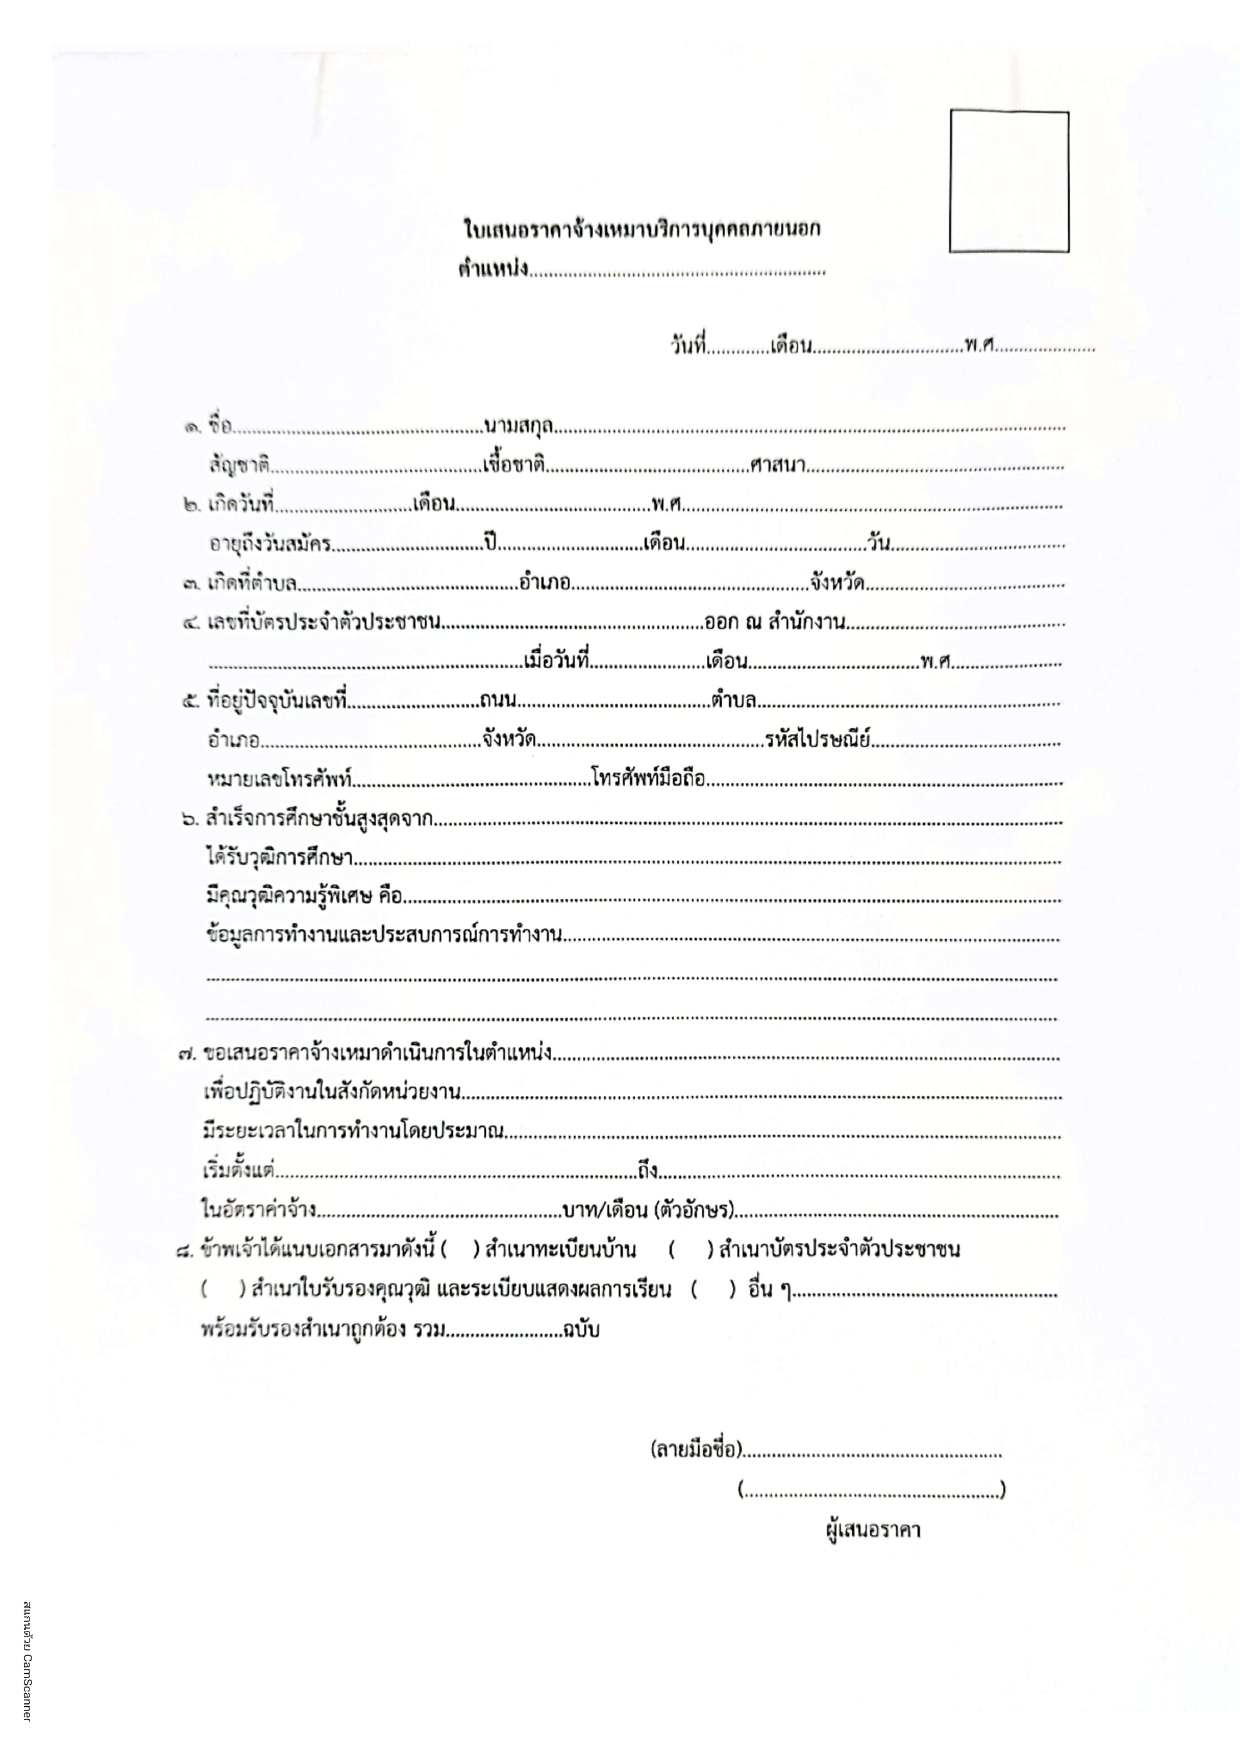 ใบเสนอราคาจ้างเหมาบริการบุคคลภายนอก
ตำแหน่ง............................................................
วันที่.............เดือน...............................พ.ศ.....................
๑. ชื่อ...................................................นามสกุล.........................................................................................................
สัญชาติ...........................................เชื้อชาติ..........................................ศาสนา.....................................................
๒. เกิดวันที่............................เดือน........................................พ.ศ...............................................................................
อายุถึงวันสมัคร...............................ปี..............................เดือน.....................................วัน....................................
๓. เกิดที่ตำบล.............................................อำเภอ.................................................จังหวัด.........................................
๔. เลขที่บัตรประจำตัวประชาชน......................................................ออก ณ สำนักงาน.............................................
................................................................เมื่อวันที่........................เดือน...................................พ.ศ.......................
๕. ที่อยู่ปัจจุบันเลขที่...........................ถนน........................................ตำบล..............................................................
อำเภอ.............................................จังหวัด...............................................รหัสไปรษณีย์.......................................
หมายเลขโทรศัพท์.................................................โทรศัพท์มือถือ.........................................................................
๖. สำเร็จการศึกษาชั้นสูงสุดจาก................................................................................................................................
ได้รับวุฒิการศึกษา................................................................................................................................................
มีคุณวุฒิความรู้พิเศษ คือ......................................................................................................................................
ข้อมูลการทำงานและประสบการณ์การทำงาน.....................................................................................................
..............................................................................................................................................................................
..............................................................................................................................................................................
๗. ขอเสนอราคาจ้างเหมาดำเนินการในตำแหน่ง.......................................................................................................
เพื่อปฏิบัติงานในสังกัดหน่วยงาน..........................................................................................................................
มีระยะเวลาในการทำงานโดยประมาณ.................................................................................................................
เริ่มตั้งแต่..........................................................................ถึง..................................................................................
ในอัตราค่าจ้าง..................................................บาท/เดือน (ตัวอักษร)..................................................................
๘. ข้าพเจ้าได้แนบเอกสารมาดังนี้ ( ) สำเนาทะเบียนบ้าน ( ) สำเนาบัตรประจำตัวประชาชน
( ) สำเนาใบรับรองคุณวุฒิ และระเบียบแสดงผลการเรียน ( ) อื่น ๆ......................................................
พร้อมรับรองสำเนาถูกต้อง รวม........................ฉบับ
(ลายมือชื่อ).....................................................
(....................................................)
ผู้เสนอราคา
สแกนด้วย CamScanner